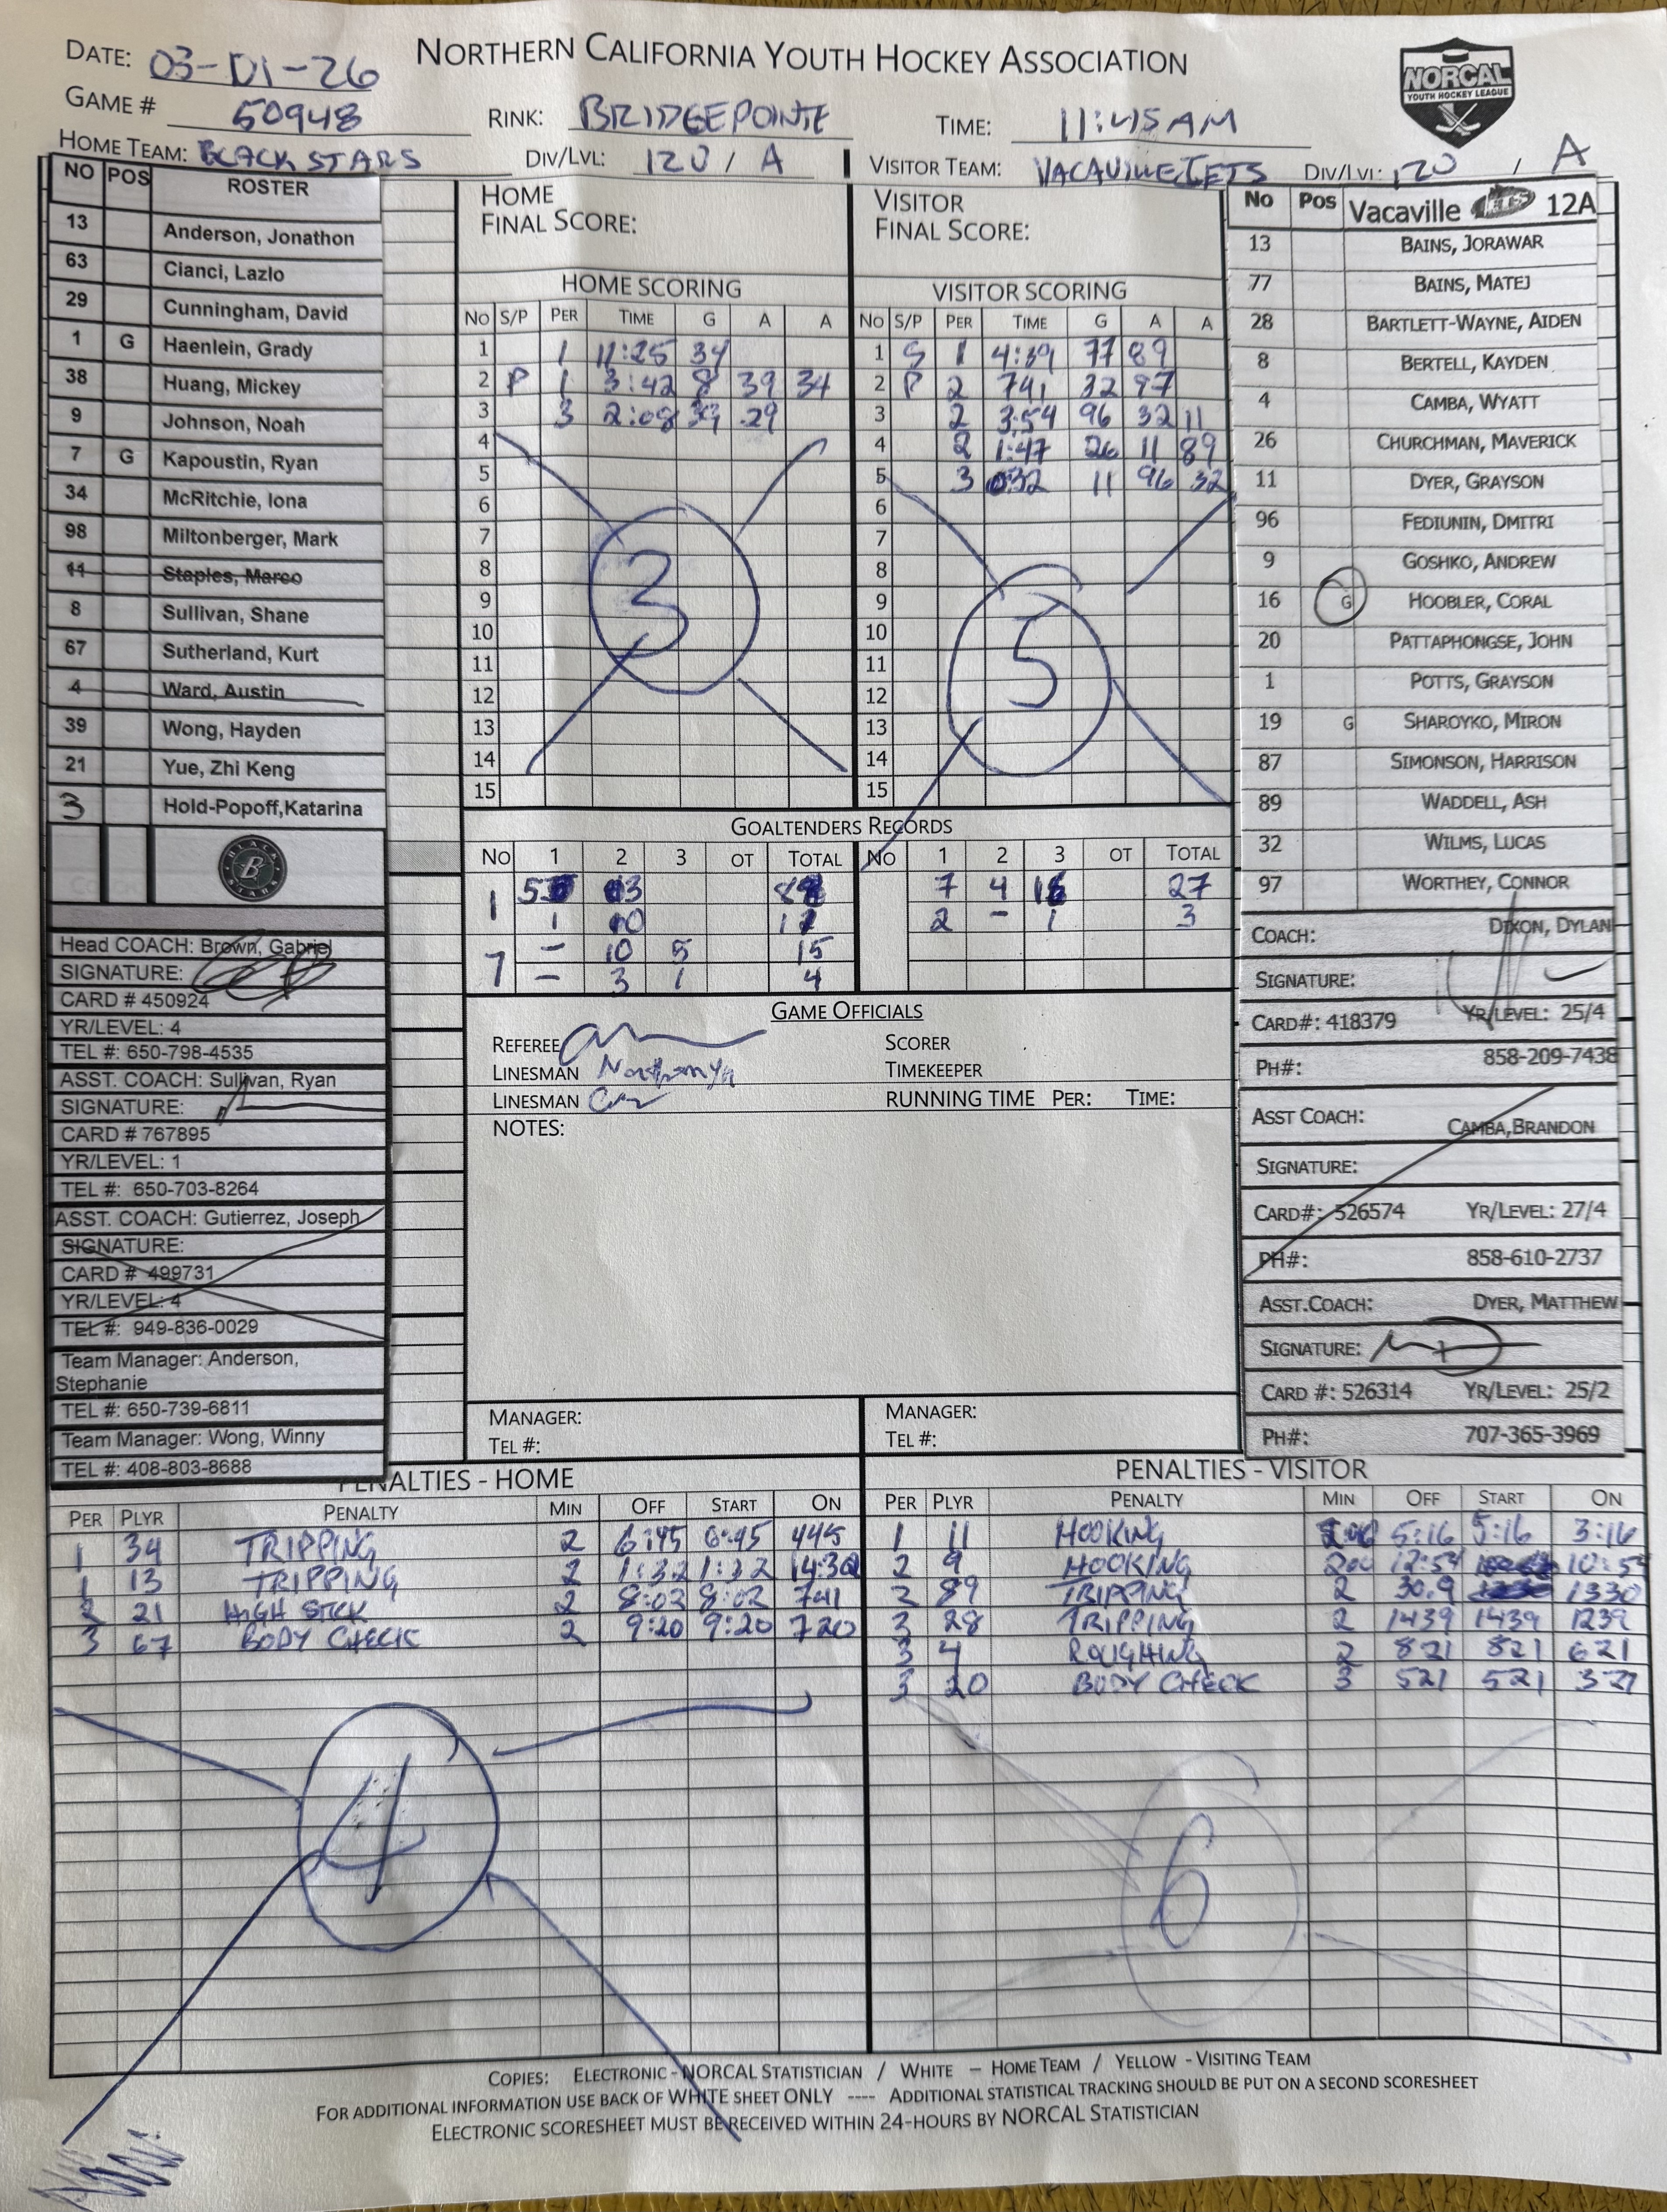 DATE: 03-01-26
NORTHERN CALIFORNIA YOUTH HOCKEY ASSOCIATION
NORCAL
YOUTH HOCKEY LEAGUE
GAME # 50948
RINK: BRIDGEPOINTE
TIME: 11:45 AM
HOME TEAM: BLACK STARS
DIV/LVL: 12U / A
VISITOR TEAM: VACAVILLE JETS
DIV/LVL: 12U / A
NO POS ROSTER
13 Anderson, Jonathon
63 Cianci, Lazlo
29 Cunningham, David
1 G Haenlein, Grady
38 Huang, Mickey
9 Johnson, Noah
7 G Kapoustin, Ryan
34 McRitchie, Iona
98 Miltonberger, Mark
11 Staples, Marco
8 Sullivan, Shane
67 Sutherland, Kurt
4 Ward, Austin
39 Wong, Hayden
21 Yue, Zhi Keng
3 Hold-Popoff,Katarina
BLACK
B
STARS
Head COACH: Brown, Gabriel
SIGNATURE:
CARD # 450924
YR/LEVEL: 4
TEL #: 650-798-4535
ASST. COACH: Sullivan, Ryan
SIGNATURE:
CARD # 767895
YR/LEVEL: 1
TEL #: 650-703-8264
ASST. COACH: Gutierrez, Joseph
SIGNATURE:
CARD # 499731
YR/LEVEL: 4
TEL #: 949-836-0029
Team Manager: Anderson,
Stephanie
TEL #: 650-739-6811
Team Manager: Wong, Winny
TEL #: 408-803-8688
HOME
FINAL SCORE:
HOME SCORING
NO S/P PER TIME G A A
1 1 11:25 34
2 P 1 3:42 8 39 34
3 3 2:08 39 29
4
5
6
7
8
9
10
11
12
13
14
15
3
VISITOR
FINAL SCORE:
VISITOR SCORING
NO S/P PER TIME G A A
1 S 1 4:39 77 89
2 P 2 741 32 97
3 2 3:54 96 32 11
4 2 1:47 26 11 89
5 3 032 11 96 32
6
7
8
9
10
11
12
13
14
15
5
GOALTENDERS RECORDS
NO 1 2 3 OT TOTAL
NO 1 2 3 OT TOTAL
1
1
7 - 10 5 15
- 3 1 4
7 4 27
2 - 1 3
GAME OFFICIALS
REFEREE
LINESMAN
LINESMAN
SCORER
TIMEKEEPER
RUNNING TIME PER: TIME:
NOTES:
MANAGER:
TEL #:
MANAGER:
TEL #:
No Pos Vacaville JETS 12A
13 BAINS, JORAWAR
77 BAINS, MATEJ
28 BARTLETT-WAYNE, AIDEN
8 BERTELL, KAYDEN
4 CAMBA, WYATT
26 CHURCHMAN, MAVERICK
11 DYER, GRAYSON
96 FEDIUNIN, DMITRI
9 GOSHKO, ANDREW
16 G HOOBLER, CORAL
20 PATTAPHONGSE, JOHN
1 POTTS, GRAYSON
19 G SHAROYKO, MIRON
87 SIMONSON, HARRISON
89 WADDELL, ASH
32 WILMS, LUCAS
97 WORTHEY, CONNOR
COACH: DIXON, DYLAN
SIGNATURE:
CARD#: 418379 YR/LEVEL: 25/4
PH#: 858-209-7438
ASST COACH: CAMBA,BRANDON
SIGNATURE:
CARD#: 526574 YR/LEVEL: 27/4
PH#: 858-610-2737
ASST.COACH: DYER, MATTHEW
SIGNATURE:
CARD #: 526314 YR/LEVEL: 25/2
PH#: 707-365-3969
PENALTIES - HOME
PER PLYR PENALTY MIN OFF START ON
1 34 TRIPPING 2 6:45 6:45 445
1 13 TRIPPING 2 1:32 1:32 14:32
2 21 HIGH STICK 2 8:02 8:02 741
3 67 BODY CHECK 2 9:20 9:20 720
4
PENALTIES - VISITOR
PER PLYR PENALTY MIN OFF START ON
1 11 HOOKING 2:00 5:16 5:16 3:16
2 9 HOOKING 200 12:54 10:54
2 89 TRIPPING 2 30.9 1330
3 28 TRIPPING 2 1439 1439 1239
3 4 ROUGHING 2 821 821 621
3 20 BODY CHECK 3 521 521 321
6
COPIES: ELECTRONIC - NORCAL STATISTICIAN / WHITE – HOME TEAM / YELLOW - VISITING TEAM
FOR ADDITIONAL INFORMATION USE BACK OF WHITE SHEET ONLY ---- ADDITIONAL STATISTICAL TRACKING SHOULD BE PUT ON A SECOND SCORESHEET
ELECTRONIC SCORESHEET MUST BE RECEIVED WITHIN 24-HOURS BY NORCAL STATISTICIAN